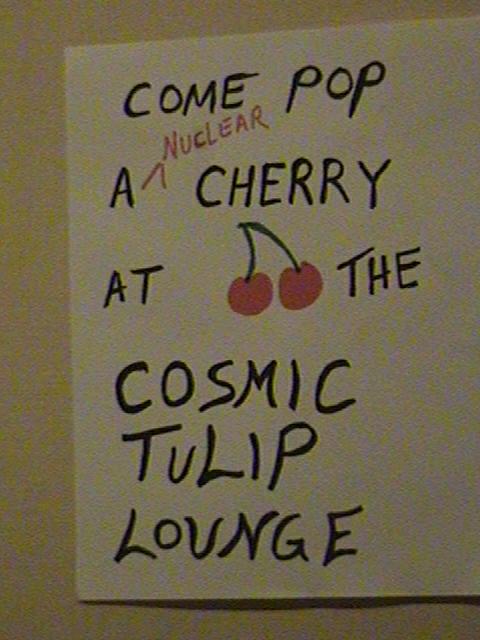 COME POP
NUCLEAR
A CHERRY
AT THE
COSMIC
TULIP
LOUNGE